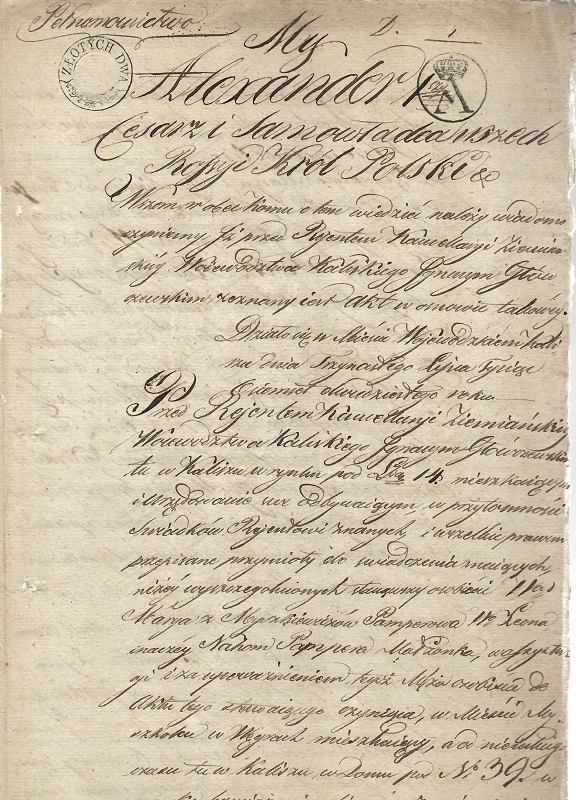 Pełnomocnictwo
My D. 1
ZŁOTYCH DWA
Alexander I
Cesarz i Samowładca wszech
Rossyi Król Polski &
Wszem w obec komu o tem wiedzieć należy wiadomo
czyniemy Iż przed Rejentem Kancellaryi Ziemiań-
skiéy Woiewództwa Kaliskiego Ignacym Głów
czewskim zeznany iest Akt w osnowie takowéy.
Działo się w Mieście Wojewódzkiem Kali
szu dnia Trzynastego Lipca Tysiąc
Ośmset dwudziestego roku
Przed Rejentem Kancellaryi Ziemiańskiéy
Woiewództwa Kaliskiego Ignacym
tu w Kaliszu w rynku pod Lbą 14 mieszkaiącym
i urzędowanie swe odbywaiącym w przytomności
Świadków Rejentowi znanych i wszelkie prawem
przepisane przymioty do świadczenia maiących
niżéy wyszczególnionych stanąwszy osobiście
Marya z Pampera Leona
inaczéy Nahom Pampera Małżonka, w assysten
cyi i za upoważnieniem tegoż Męża osobiście do
Aktu tego stawaiącego czyniąca, w Mieście My
szkolcu w Węgrach mieszkaiący, a od nieiakiego
czasu tu w Kaliszu, w Domu pod No 39. w